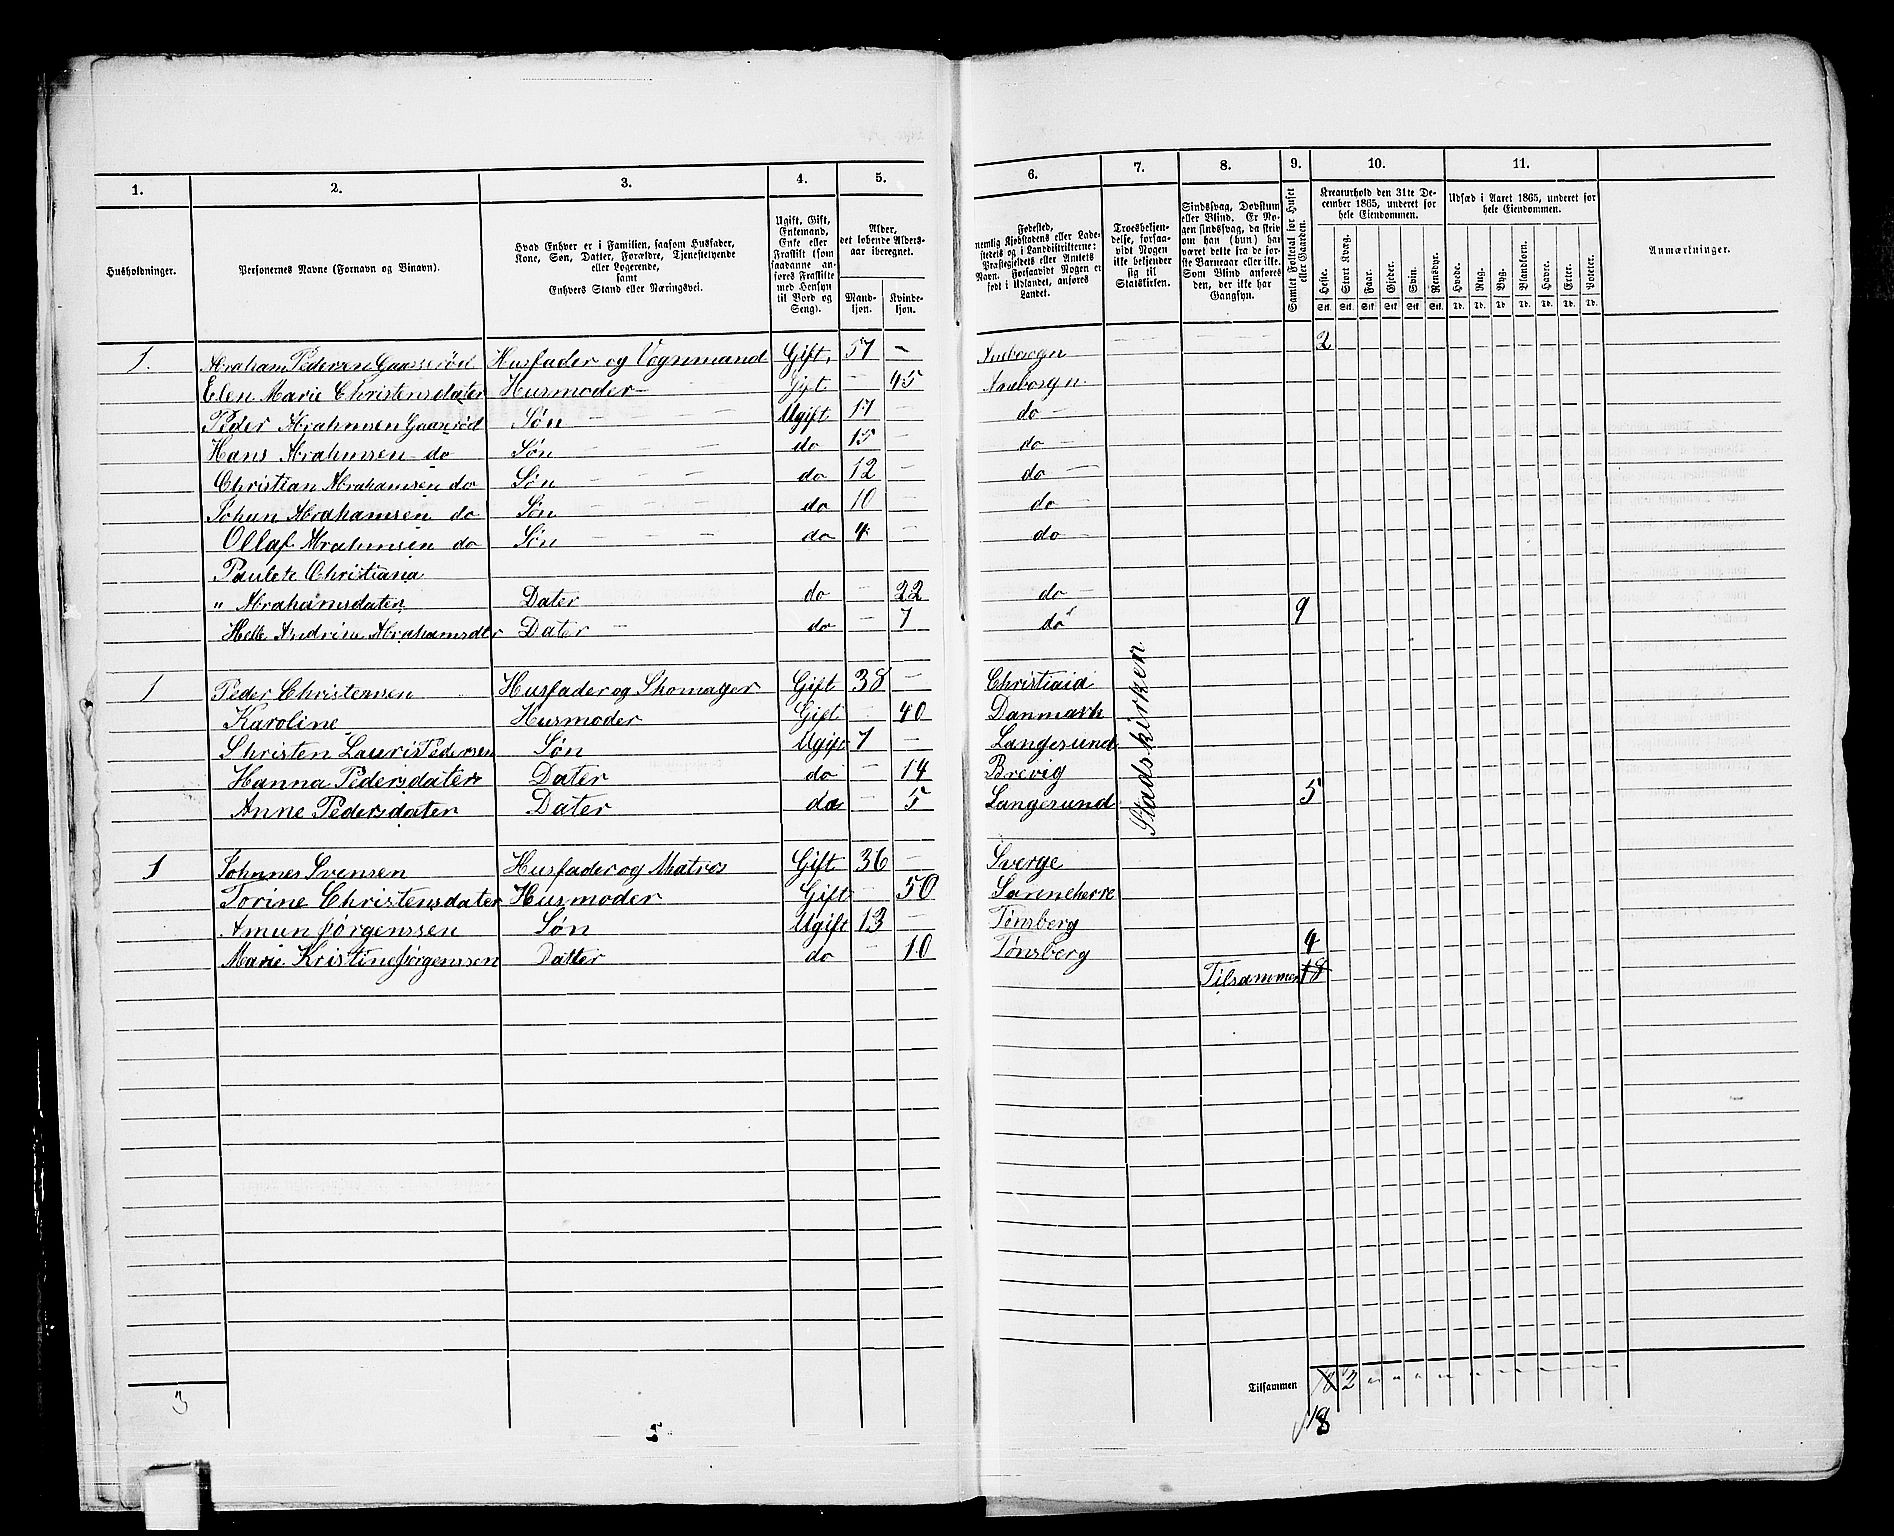 1. 2. 3. 4. 5. 6. 7. 8. 9. 10. 11.
Husholdninger.
Personernes Navne (Fornavn og Binavn).
Hvad Enhver er i Familien, saasom Husfader,
Kone, Søn, Datter, Forældre, Tjenestetyende
eller Logerende,
samt
Enhvers Stand eller Næringsvei.
Ugift, Gift,
Enkemand,
Enke eller
Fraskilt (som
saadanne an-
føres Fraskilte
med Hensyn
til Bord og
Seng).
Alder,
det løbende Alders-
aar iberegnet.
Mand-
kjøn.
Kvinde-
kjøn.
Fødested,
nemlig Kjøbstadens eller Lade-
stedets og i Landdistrikterne:
Præstegjeldets eller Amtets
Navn. Forsaavidt Nogen er
født i Udlandet, anføres
Landet.
Troesbekjen-
delse, forsaa-
vidt Nogen
ikke bekjender
sig til
Statskirken.
Sindssvag, Døvstum
eller Blind. Er No-
gen sindssvag, da skriv
om han (hun) har
været dette fra de før-
ste Barneaar eller ikke.
Som Blind anføres
den, der ikke har
Gangsyn.
Samlet Folketal for Huset
eller Gaarden.
Kreaturhold den 31te De-
cember 1865, underet for
hele Eiendommen.
Heste. Stort Kvæg. Faar. Gjeder. Svin. Rensdyr.
Stk. Stk. Stk. Stk. Stk. Stk.
Udsæd i Aaret 1865, underet for
hele Eiendommen.
Hvede. Rug. Byg. Blandkorn. Havre. Erter. Poteter.
Td. Td. Td. Td. Td. Td. Td.
Anmærkninger.
1. Abraham Pedersen Gaaserød Husfader og Vognmand Gift. 57 – 2
Elen Marie Christensdater Husmoder – Gift – 45
Peder Abrahmsen Gaaserød Søn – Ugift 17 – do –
Hans Abrahmsen do Søn – – do 15 – do –
Christian Abrahamsen do Søn – – do 12 – do –
Johan Abrahamsen do Søn – – do 10 – do –
Ollaf Abrahmsen do Søn – – – do 4 – do –
Paulete Christiana
" Abrahamsdater Dater do – 22 do –
Helle Andrine Abrahamsdter Dater – do – 7 do 9
1 Peder Christensen Husfader og Skomager Gift 38 – Christiaid
Karoline Husmoder Gift – 40 Danmark
Christen Lauris Pedersen Søn Ugift 7 – Langesund
Hanna Pedersdater Dater do – 14 Brevig
Anne Pedersdater Dater do – 5 Langesund 5
Stadskirken
1 Johnnes Svensen Husfader og Matros Gift 36 – Sverge
Torine Christensdater Husmoder Gift – 50 Sanneherre
Amun Jørgenssen Søn Ugift 13 – Tønsberg
Marie Kristine Jørgenssen Datter do – 10 Tønsberg 4
Tilsammen 18
Tilsammen 18 2
3
5
18